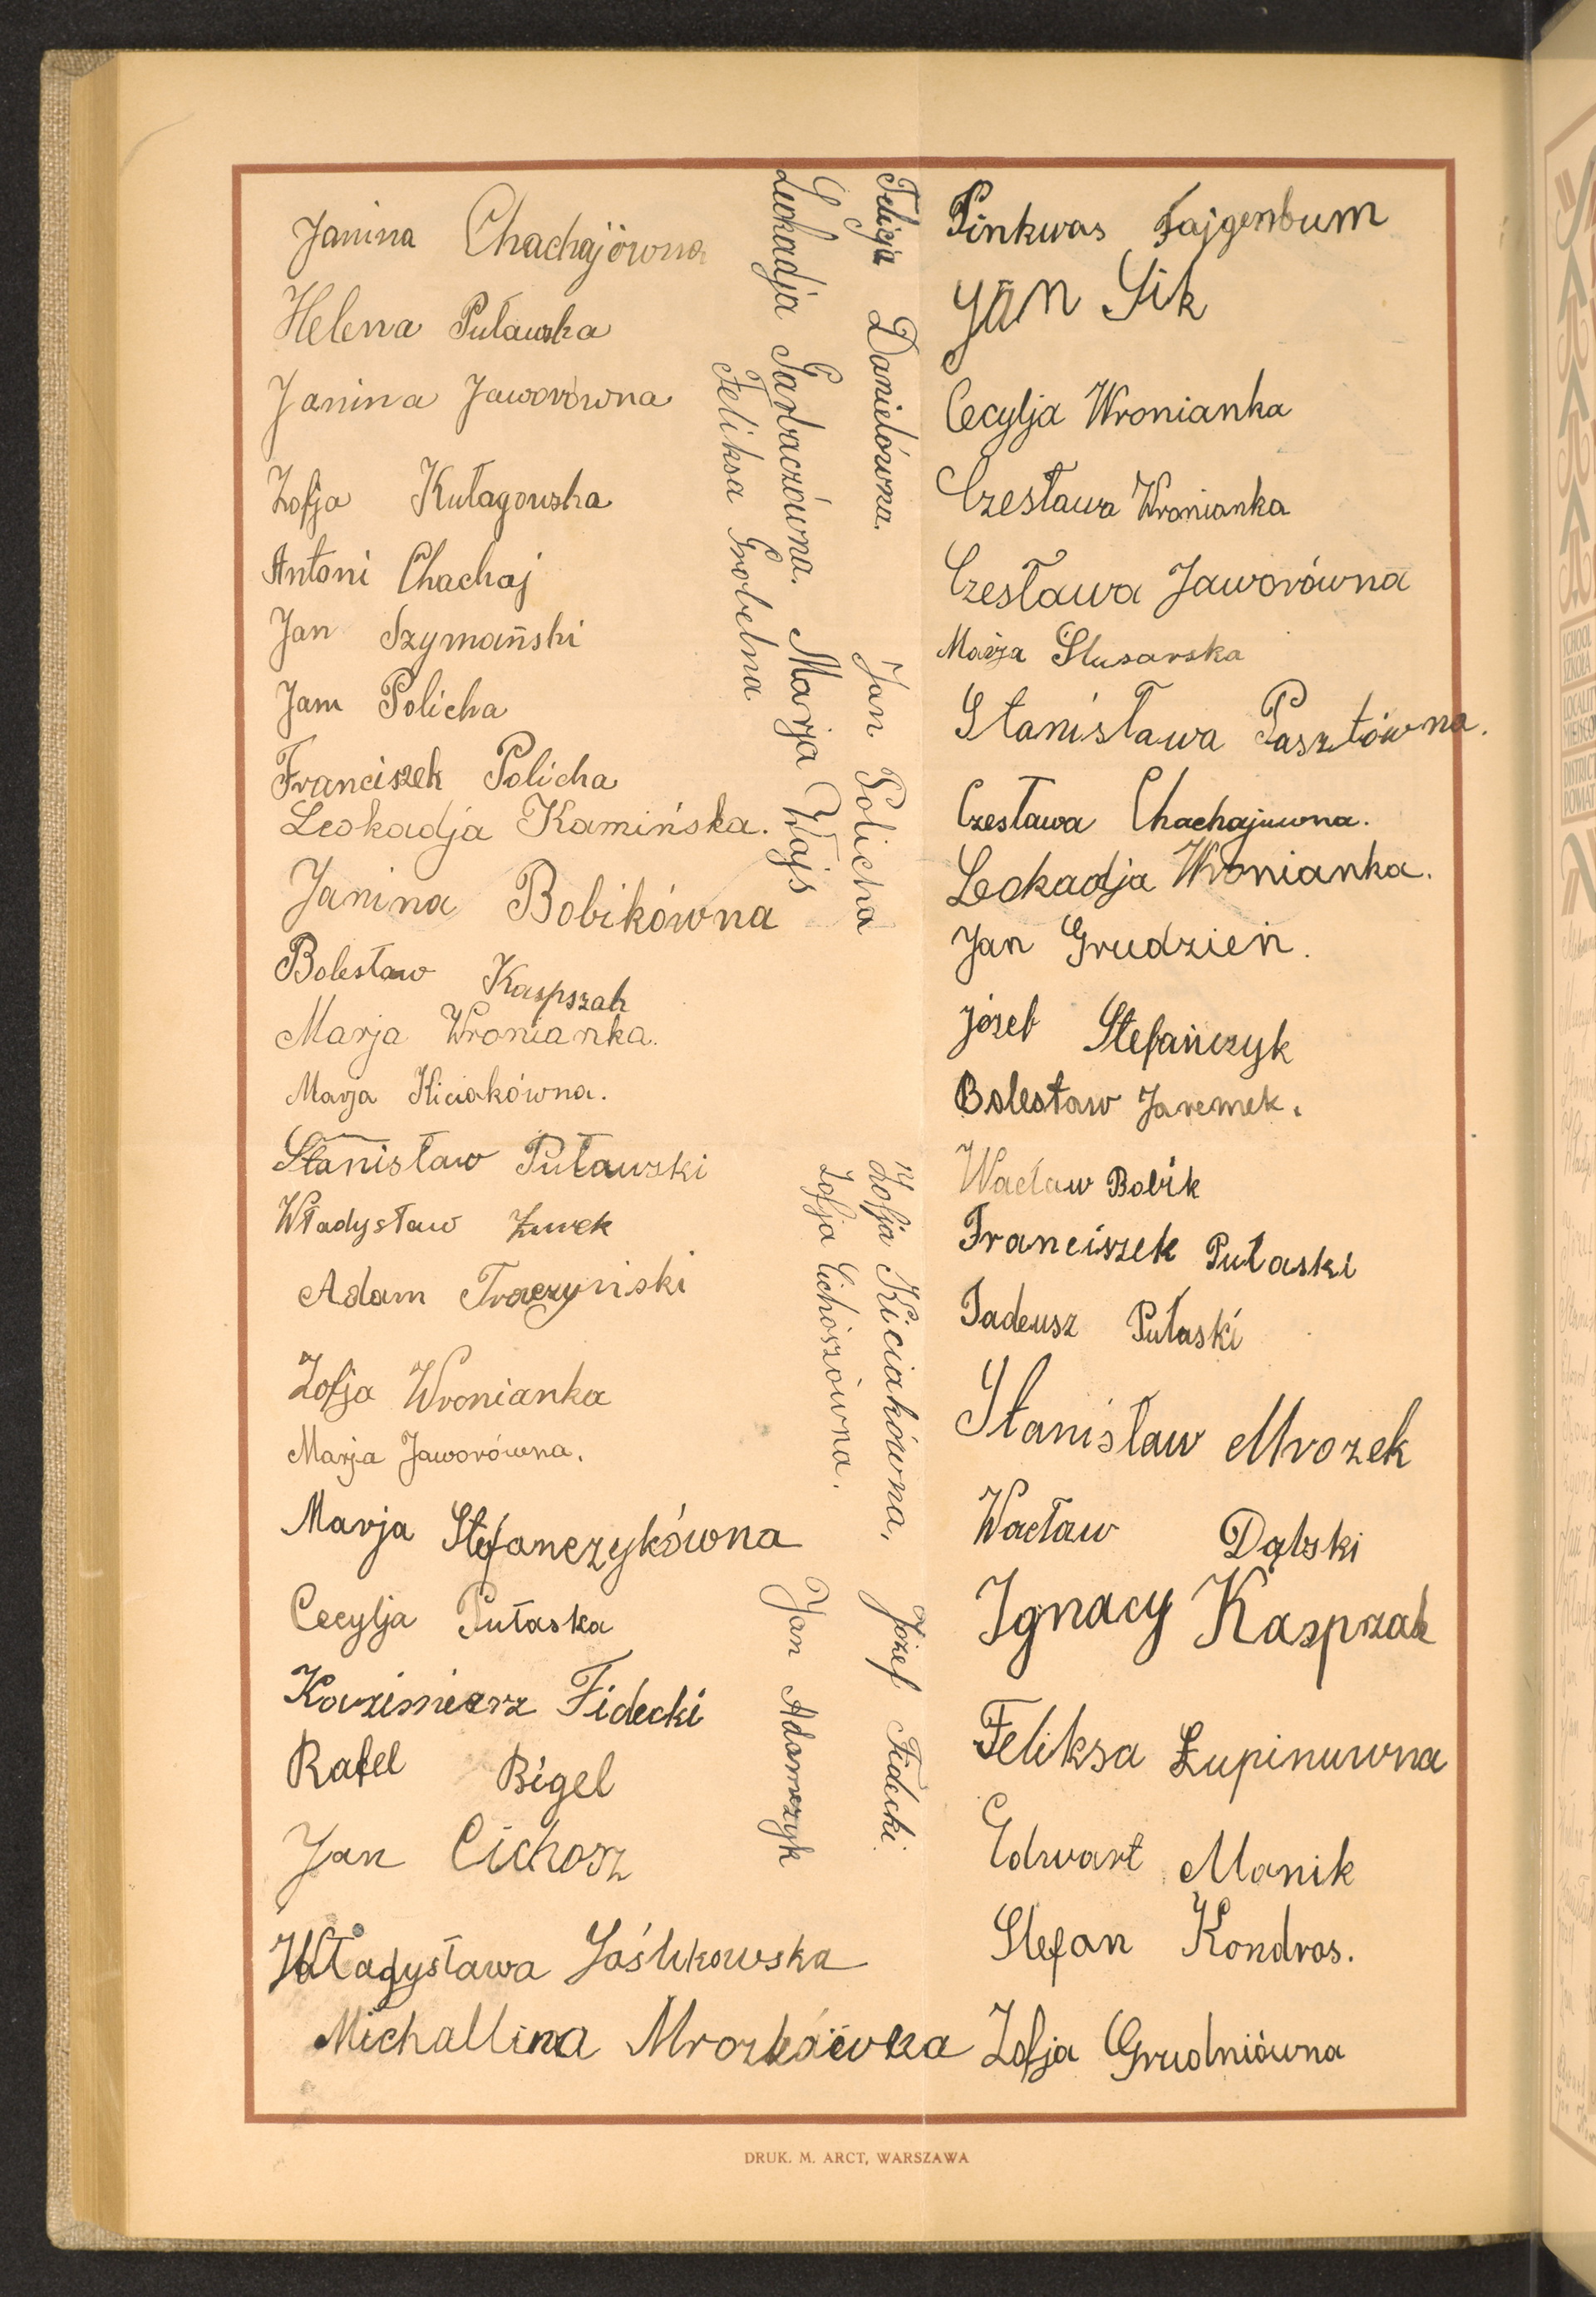 Janina Chachajówna
Helena Puławska
Janina Jaworówna
Zofja Kułagowska
Antoni Chachaj
Jan Szymański
Jan Policha
Franciszek Policha
Leokadja Kamińska.
Janina Bobikówna
Bolesław Kaspszak
Marja Wronianka.
Marja Kiciakówna.
Stanisław Puławski
Władysław Żurek
Adam Traczyński
Zofja Wronianka
Marja Jaworówna.
Marja Stefanczykówna
Cecylja Pułaska
Kazimierz Fidecki
Rafel Bigel
Jan Cichosz
Władysława Jaśkkowska
Michallina Mrozkówna
Feliksa Grobelna
Leokadja Garbaczówna. Marja Wajs
Felicja Danielówna. Jan Policha
Zofja Cichoszówna.
Zofja Kiciakówna,
Jan Adamczyk
Józef Fidecki.
Pinkwas Fajgenbum
Jan Sik
Cecylja Wronianka
Czesława Wronianka
Czesława Jaworówna
Marja Slusarska
Stanisława Pasztówna.
Czesława Chachajuwna.
Leokadja Wronianka.
Jan Grudzień.
józef Stefańczyk
Bolesław Jaremek.
Wacław Bobik
Franciszek Pułaski
Tadeusz Pułaski
Stanisław Mrozek
Wacław Dąbski
Ignacy Kasprzak
Feliksa Łupinuwna
Edwart Manik
Stefan Kondras.
Zofja Grudniówna
DRUK. M. ARCT, WARSZAWA
SCHOOL
SZKOŁA
LOCALITY
DISTRICT
POWIAT